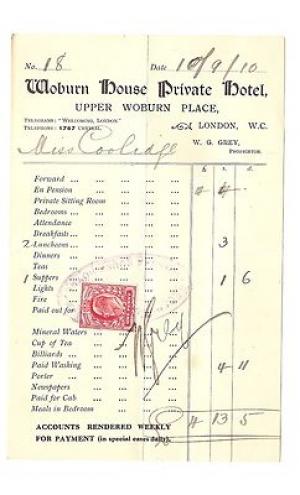 No. 18 Date 10/9/10
Woburn House Private Hotel,
UPPER WOBURN PLACE,
TELEGRAMS: "WELCOMING, LONDON."
TELEPHONE: 5767 CENTRAL.
LONDON, W.C.
W. G. GREY,
PROPRIETOR.
Miss Coolidge
£ s. d.
Forward ... ...
En Pension ... 4 4
Private Sitting Room
Bedrooms ... ...
Attendance
Breakfasts ...
2 Luncheons ... 3
Dinners ...
Teas
1 Suppers ... 1 6
Lights ...
Fire
Paid out for
Mineral Waters ...
Cup of Tea
Billiards ...
Paid Washing 4 11
Porter ...
Newspapers
Paid for Cab
Meals in Bedroom
£ 4 13 5
ACCOUNTS RENDERED WEEKLY
FOR PAYMENT (in special cases daily).